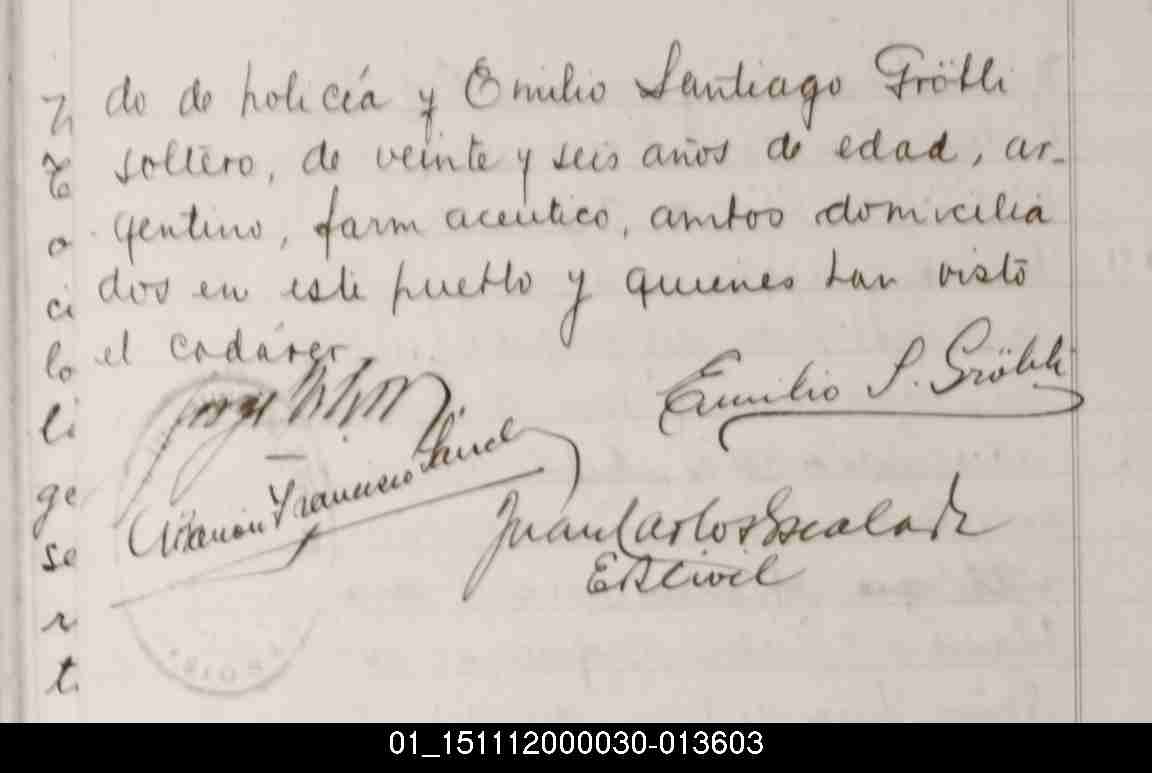 do de policía y Emilio Santiago Gröbli
soltero, de veinte y seis años de edad, ar-
gentino, farmaceutico, ambos domicilia
dos en este pueblo y quienes han visto
el cadáver
Jorge
Emilio S. Gröbli
Francisco
Juan Carlos Escalada
E R Civil
ci
lo
li
ge
se
r
t
01_151112000030-013603